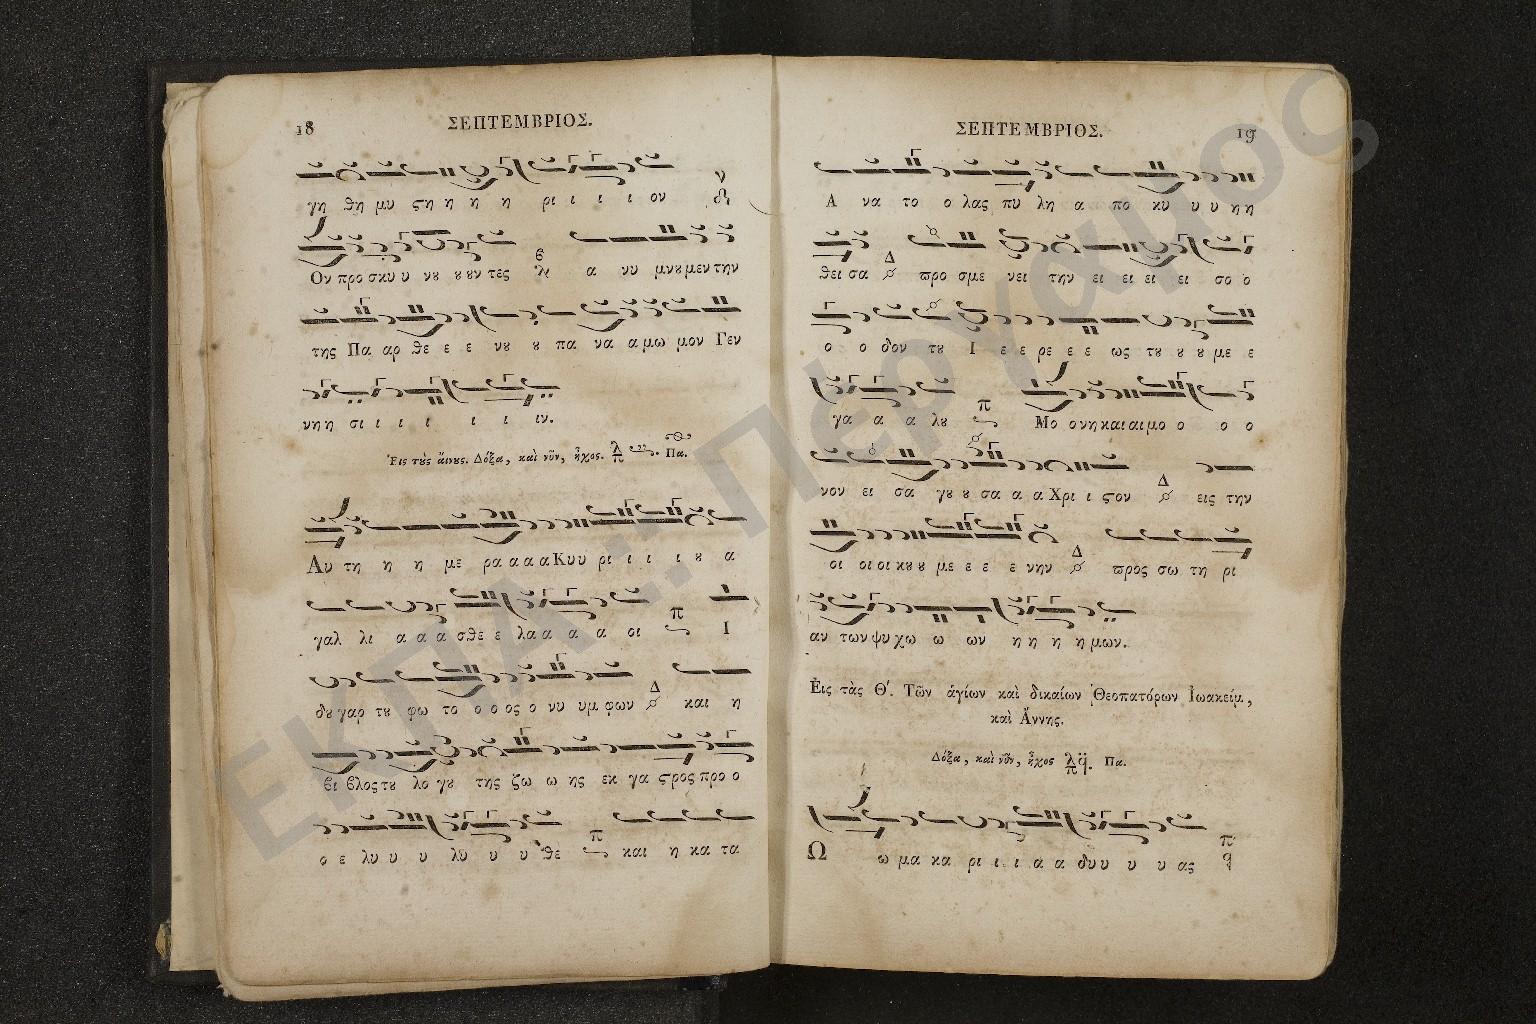 18 ΣΕΠΤΕΜΒΡΙΟΣ.
γη θη μυ ϛη η η η ρι ι ι ι ον
Ον προ σκυ υ νȣ ȣ ȣν τες α νυ μνȣ μεν την
της Πα αρ θε ε ε νȣ ȣ πα να α μω μον Γεν
νη η σι ι ι ι ι ι ιν.
Εἰς τȣ̀ς αἴνȣς. Δόξα, καὶ νῦν, ἦχος. Πα.
Αυ τη η η με ρα α α α Κυ υ ρι ι ι ι ȣ α
γαλ λι α α α σθε ε λα α α α οι π Ι
δȣ γαρ τȣ φω το ο ο ος ο νυ υμ φων Δ και η
βι βλος τȣ λο γȣ της ζω ω ης εκ γα ϛρος προ ο
ο ε λυ υ υ λυ υ υ θε π και η κα τα
ΣΕΠΤΕΜΒΡΙΟΣ. 19
Α να το ο λας πυ λη α πο κυ υ υ η η
θει σα Δ ϖρο σμε νει την ει ει ει ει σο ο
ο ο δον τȣ Ι ε ε ρε ε ε ως τȣ ȣ ȣ με ε
γα α α λȣ π Μο ο νη και αι μο ο ο ο
νον ει σα γȣ ȣ σα α α Χρι ι ϛον Δ εις την
οι οι οι κȣ ȣ με ε ε ε νην Δ ϖρος σω τη ρι
αν των ψυ χω ω ων η η η η μων.
Εἰς τὰς Θ΄. Τῶν ἁγίων καὶ δικαίων Θεοπατόρων Ἰωακείμ,
καὶ Ἄννης.
Δόξα, καὶ νῦν, ἦχος Πα.
Ω ω μα κα ρι ι ι α α δυ υ υ υ ας
ΕΚΠΑ.:.Πέργαμος